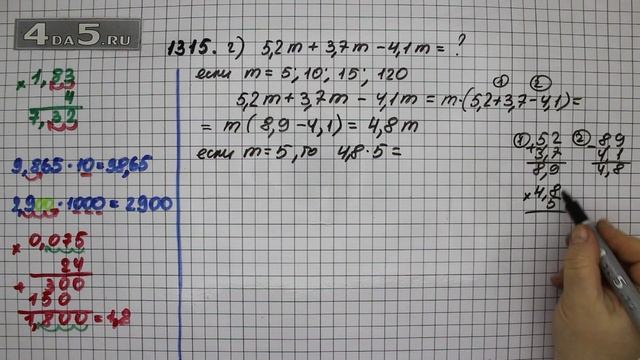 4DA5.RU
1315. г) 5,2m + 3,7m - 4,1m = ?
если m = 5; 10; 15; 120
① ②
5,2m + 3,7m - 4,1m = m·(5,2+3,7-4,1) =
= m(8,9-4,1) = 4,8m
если m=5, то 4,8·5 =
× 1,83
4
7,32
9,865·10=98,65
2,900·1000=2900
× 0,075
24
+ 300
150
1,800=1,8
① 5,2
+ 3,7
8,9
② - 8,9
4,1
4,8
× 4,8
5